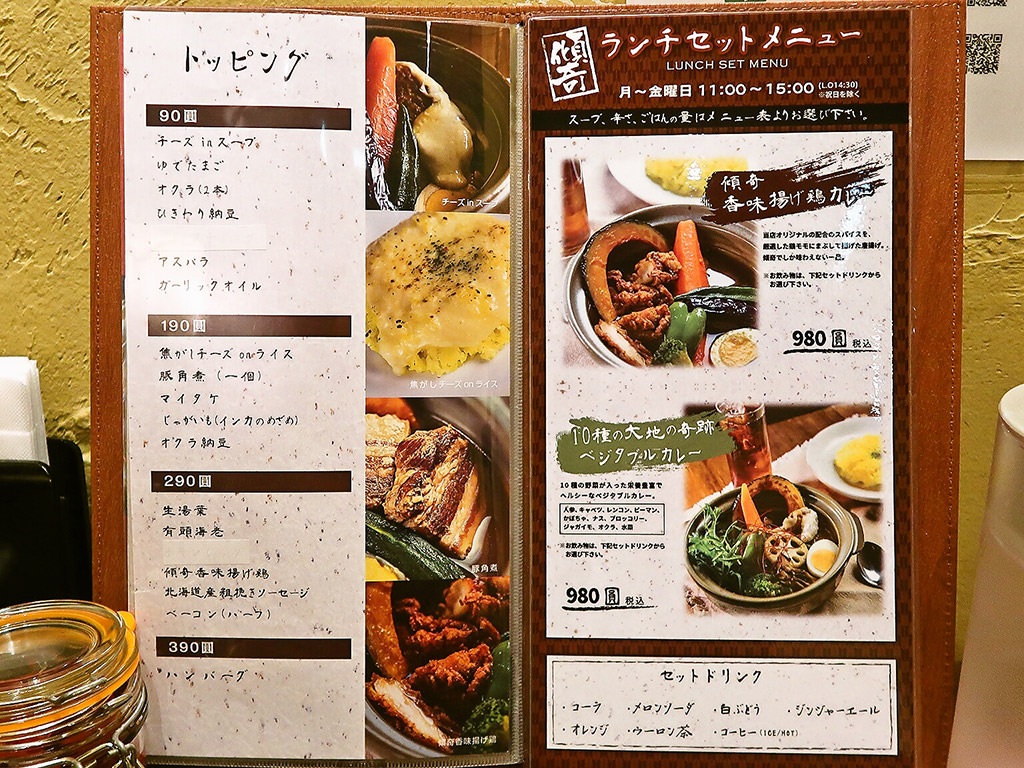 トッピング
90圓
チーズ in スープ
ゆでたまご
オクラ(2本)
ひきわり納豆
アスパラ
ガーリックオイル
190圓
焦がしチーズ on ライス
豚角煮 (一個)
マイタケ
じゃがいも(インカのめざめ)
オクラ納豆
290圓
生湯葉
有頭海老
傾奇香味揚げ鶏
北海道産粗挽きソーセージ
ベーコン(ハーフ)
390圓
ハンバーグ
チーズ in スープ
焦がしチーズ on ライス
豚角煮
傾奇香味揚げ鶏
傾奇
ランチセットメニュー
LUNCH SET MENU
月～金曜日 11:00～15:00 (L.O14:30)
※祝日を除く
スープ、辛さ、ごはんの量はメニュー表よりお選び下さい。
傾奇
香味揚げ鶏カレー
当店オリジナルの配合のスパイスを、
厳選した鶏モモにまぶして揚げた唐揚げ。
傾奇でしか味わえない一品。
※お飲み物は、下記セットドリンクから
お選び下さい。
980圓 税込
10種の大地の奇跡
ベジタブルカレー
10種の野菜が入った栄養豊富で
ヘルシーなベジタブルカレー。
人参、キャベツ、レンコン、ピーマン、
かぼちゃ、ナス、ブロッコリー、
ジャガイモ、オクラ、水菜
※お飲み物は、下記セットドリンクから
お選び下さい。
980圓 税込
セットドリンク
・コーラ ・メロンソーダ ・白ぶどう ・ジンジャーエール
・オレンジ ・ウーロン茶 ・コーヒー(ICE/HOT)